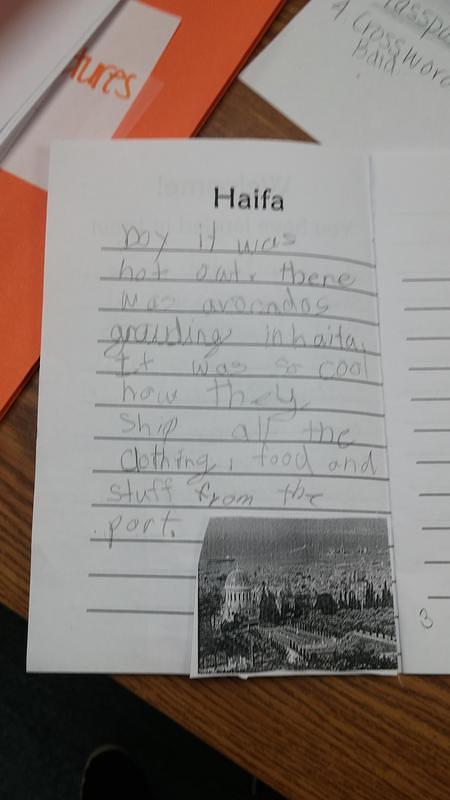 tures
4 Crossword
Haifa
boy it was
hot out. there
was avocados
grauding in haifa.
It was so cool
how they
Ship all the
Clothing, food and
stuff from the
port.
3